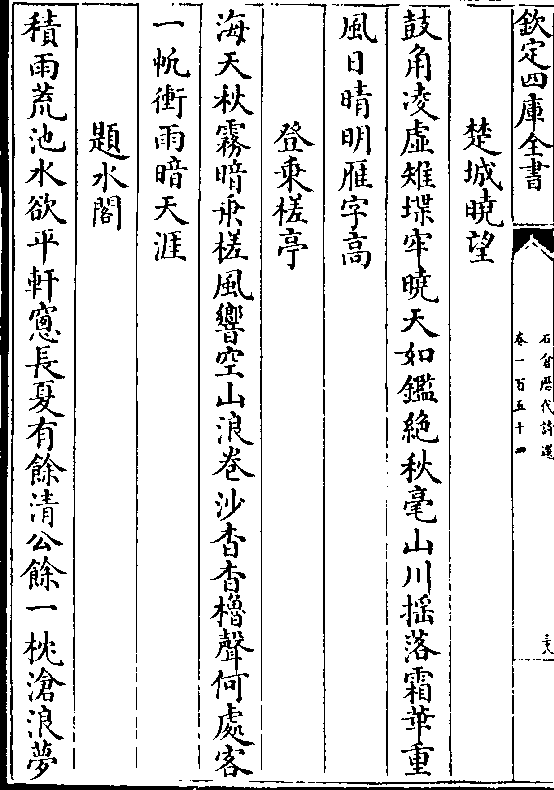 欽定四庫全書
石倉歷代詩選
卷一百五十四
三六
楚城曉望
鼓角凌虛雉堞牢曉天如鑑絶秋毫山川揺落霜華重
風日晴明雁字高
登乗槎亭
海天秋霧暗乗槎風響空山浪卷沙杳杳櫓聲何處客
一帆衝雨暗天涯
題水閣
積雨荒池水欲平軒窻長夏有餘清公餘一枕滄浪夢